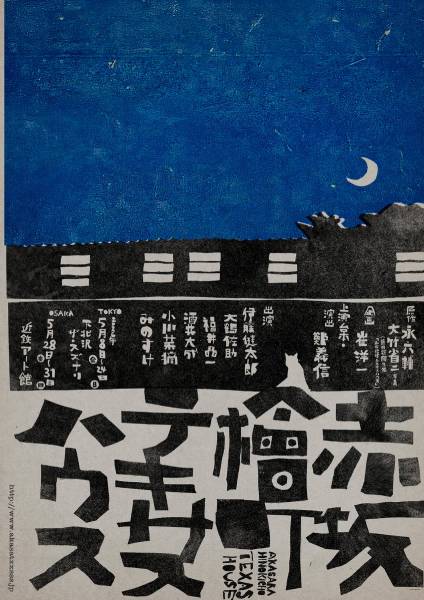 原作
永六輔
大竹省二
企画
崔洋一
上演台本・
演出
鄭義信
出演
伊藤健太郎
大鶴佐助
福井晶一
酒井大成
小川菜摘
みのすけ
TOKYO
5月8日
24日
下北沢
ザ・スズナリ
OSAKA
5月28日
31日
近鉄アート館
赤坂
檜町
テキサス
ハウス
AKASAKA
HINOKICHO
TEXAS
HOUSE